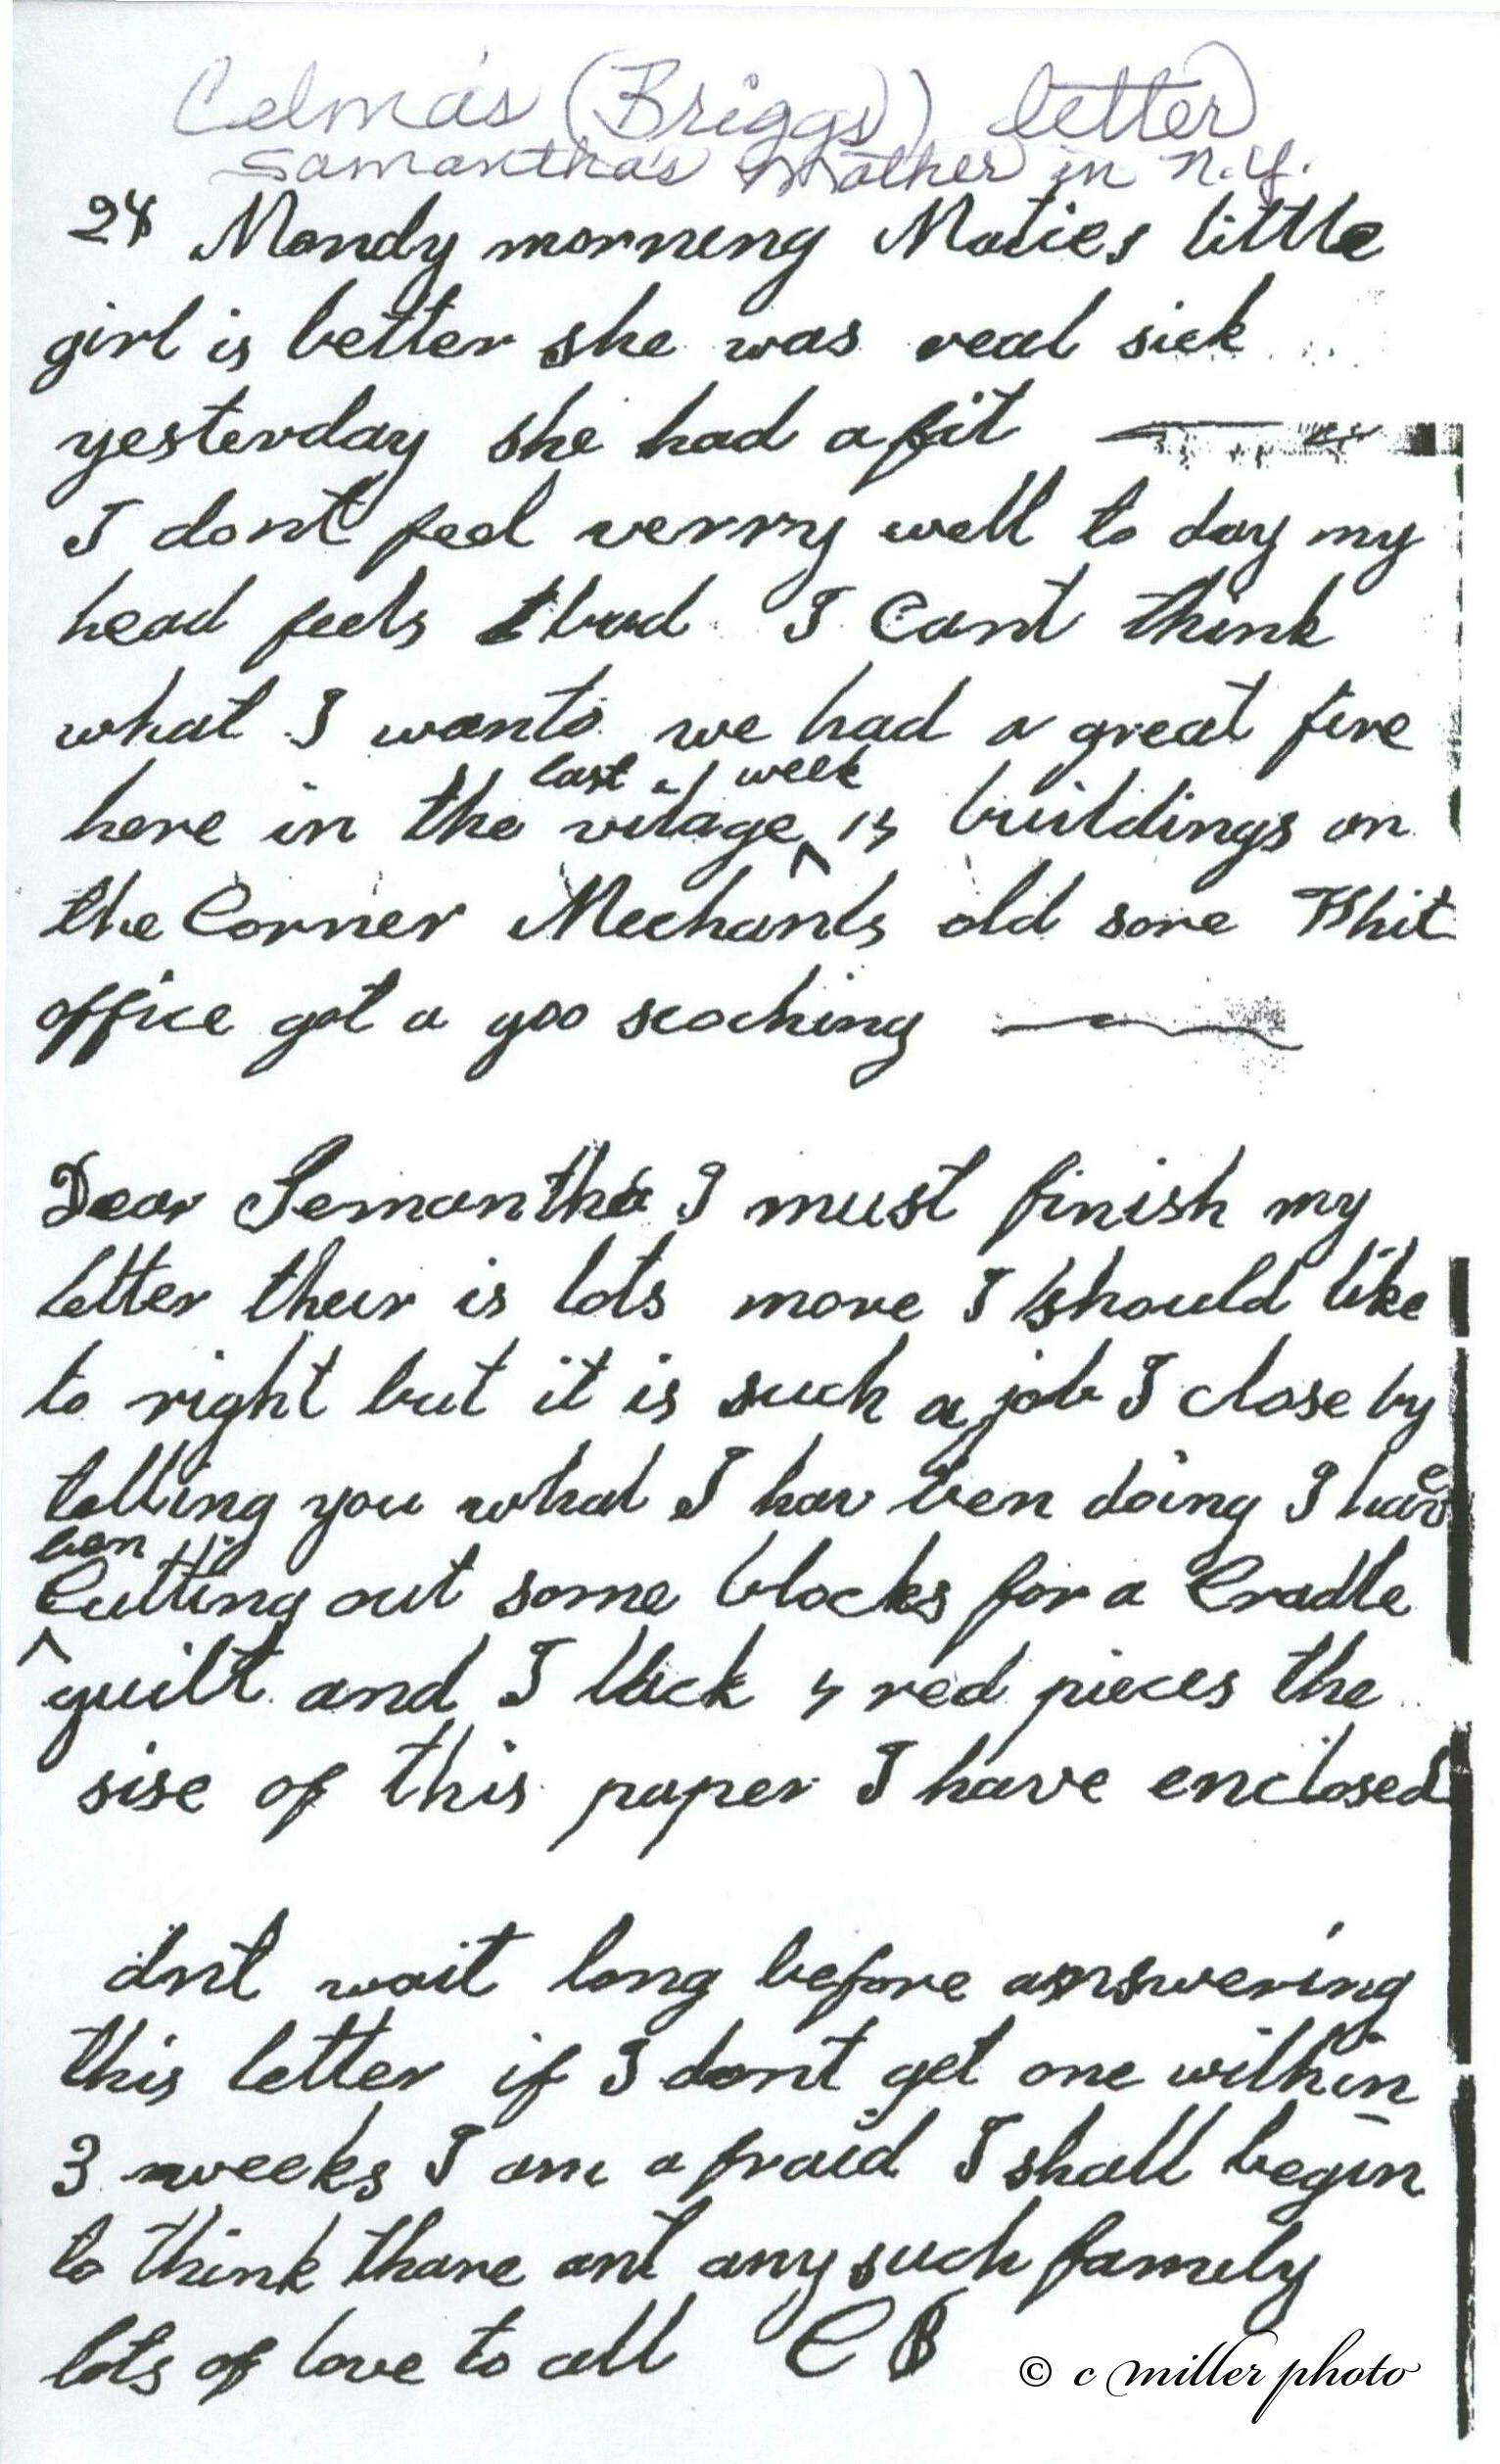 Celma's (Briggs) letter
Samantha's Mother in N.Y.
24 Mondy morneng Maties little
girl is better she was real sick
yesterday she had a fit
I dont feel verry well to day my
head feels bad I Cant think
what I wanto we had a great fire
here in the vilage last week buildings on
the Corner Mechants old sore Whit
office got a goo scoching
Dear Semantha I must finish my
letter their is lots more I should like
to right but it is such a job I close by
telling you what I hav ben doing I have
ben Cutting out some blocks for a Cradle
quilt and I lack 4 red pieces the
sise of this paper I have enclosed
dnt wait long before answering
this letter if I dont get one within
3 weeks I am a fraid I shall begin
to think thare ant any such family
lots of love to all C B
© c miller photo